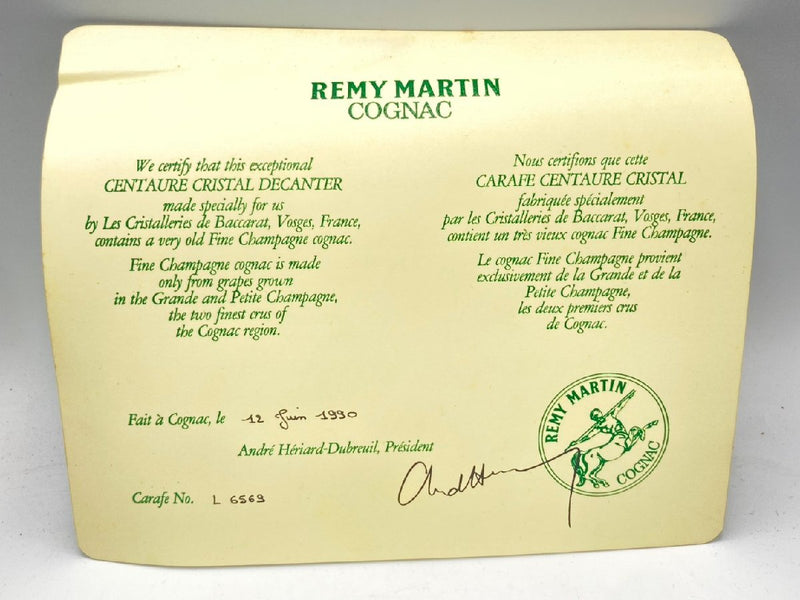 REMY MARTIN
COGNAC
We certify that this exceptional
CENTAURE CRISTAL DECANTER
made specially for us
by Les Cristalleries de Baccarat, Vosges, France,
contains a very old Fine Champagne cognac.
Fine Champagne cognac is made
only from grapes grown
in the Grande and Petite Champagne,
the two finest crus of
the Cognac region.
Nous certifions que cette
CARAFE CENTAURE CRISTAL
fabriquée spécialement
par les Cristalleries de Baccarat, Vosges, France,
contient un très vieux cognac Fine Champagne.
Le cognac Fine Champagne provient
exclusivement de la Grande et de la
Petite Champagne,
les deux premiers crus
de Cognac.
Fait à Cognac, le 12 Juin 1990
André Hériard-Dubreuil, Président
Carafe No. L 6569
REMY MARTIN
COGNAC